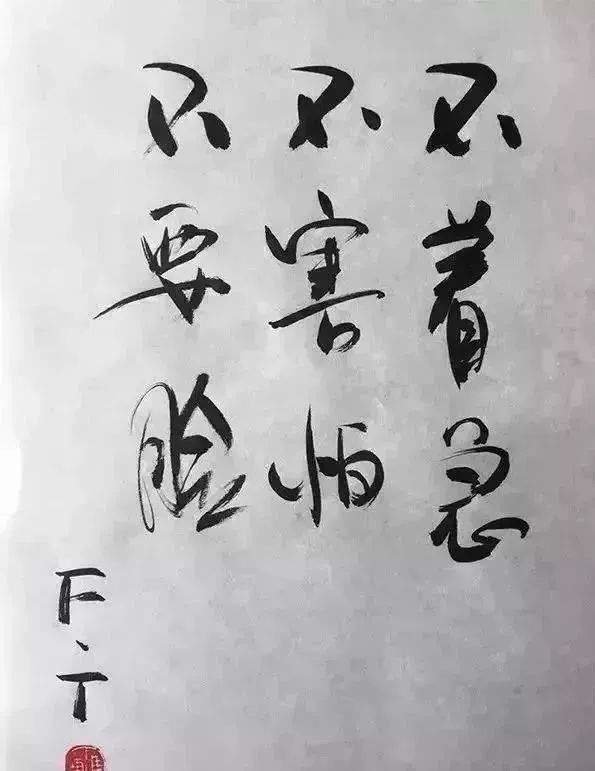 不着急
不害怕
不要脸
F.T